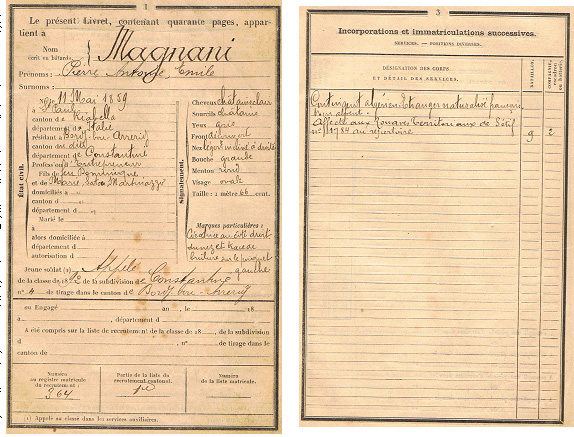 1
Le présent Livret, contenant quarante pages, appar-
tient à
Nom
écrit en bâtarde.
Magnani
Prénoms : Pierre Antoine Emile
Surnoms :
Né le 11 Mai 1859
à
canton de
département d'Italie
résidant à Bordj-bou-Arreridj
canton du dit
département de Constantine
Profession d'Entrepreneur
Fils de feu Dominique
et de Marie
domiciliés à
canton d
département d
Marié le
à
alors domiciliée à
département d
autorisation d
État civil.
Signalement.
Cheveux châtain clair
Sourcils châtains
Yeux gris
Front découvert
Nez légt incliné à droite
Bouche grande
Menton rond
Visage ovale
Taille : 1 mètre 66 cent.
Marques particulières :
Cicatrice au côté droit
du nez et trace de
brûlure sur le poignet
gauche
Jeune soldat (1) Appelé
de la classe de 18 de la subdivision de Constantine
n° 4 de tirage dans le canton de Bordj-bou-Arreridj
ou Engagé an , le 18
à , département d
A été compris sur la liste de recrutemt n° de la classe de 18 , de la subdivision
d , n° de tirage dans le
canton de
Numéro
au registre matricule
du recrutement :
964
Partie de la liste
du recrutement cantonal.
1re
Numéro
de la liste matricule.
(1) Appelé ou classé dans les services auxiliaires.
3
Incorporations et immatriculations successives.
SERVICES. — POSITIONS DIVERSES.
DÉSIGNATION DES CORPS
ET DÉTAIL DES SERVICES.
BATAILLON.
COMPAGNIE,
Contingent algérien Etranger naturalisé français
Affecté aux Zouaves territoriaux de Sétif
n° 1984 au répertoire
9
2